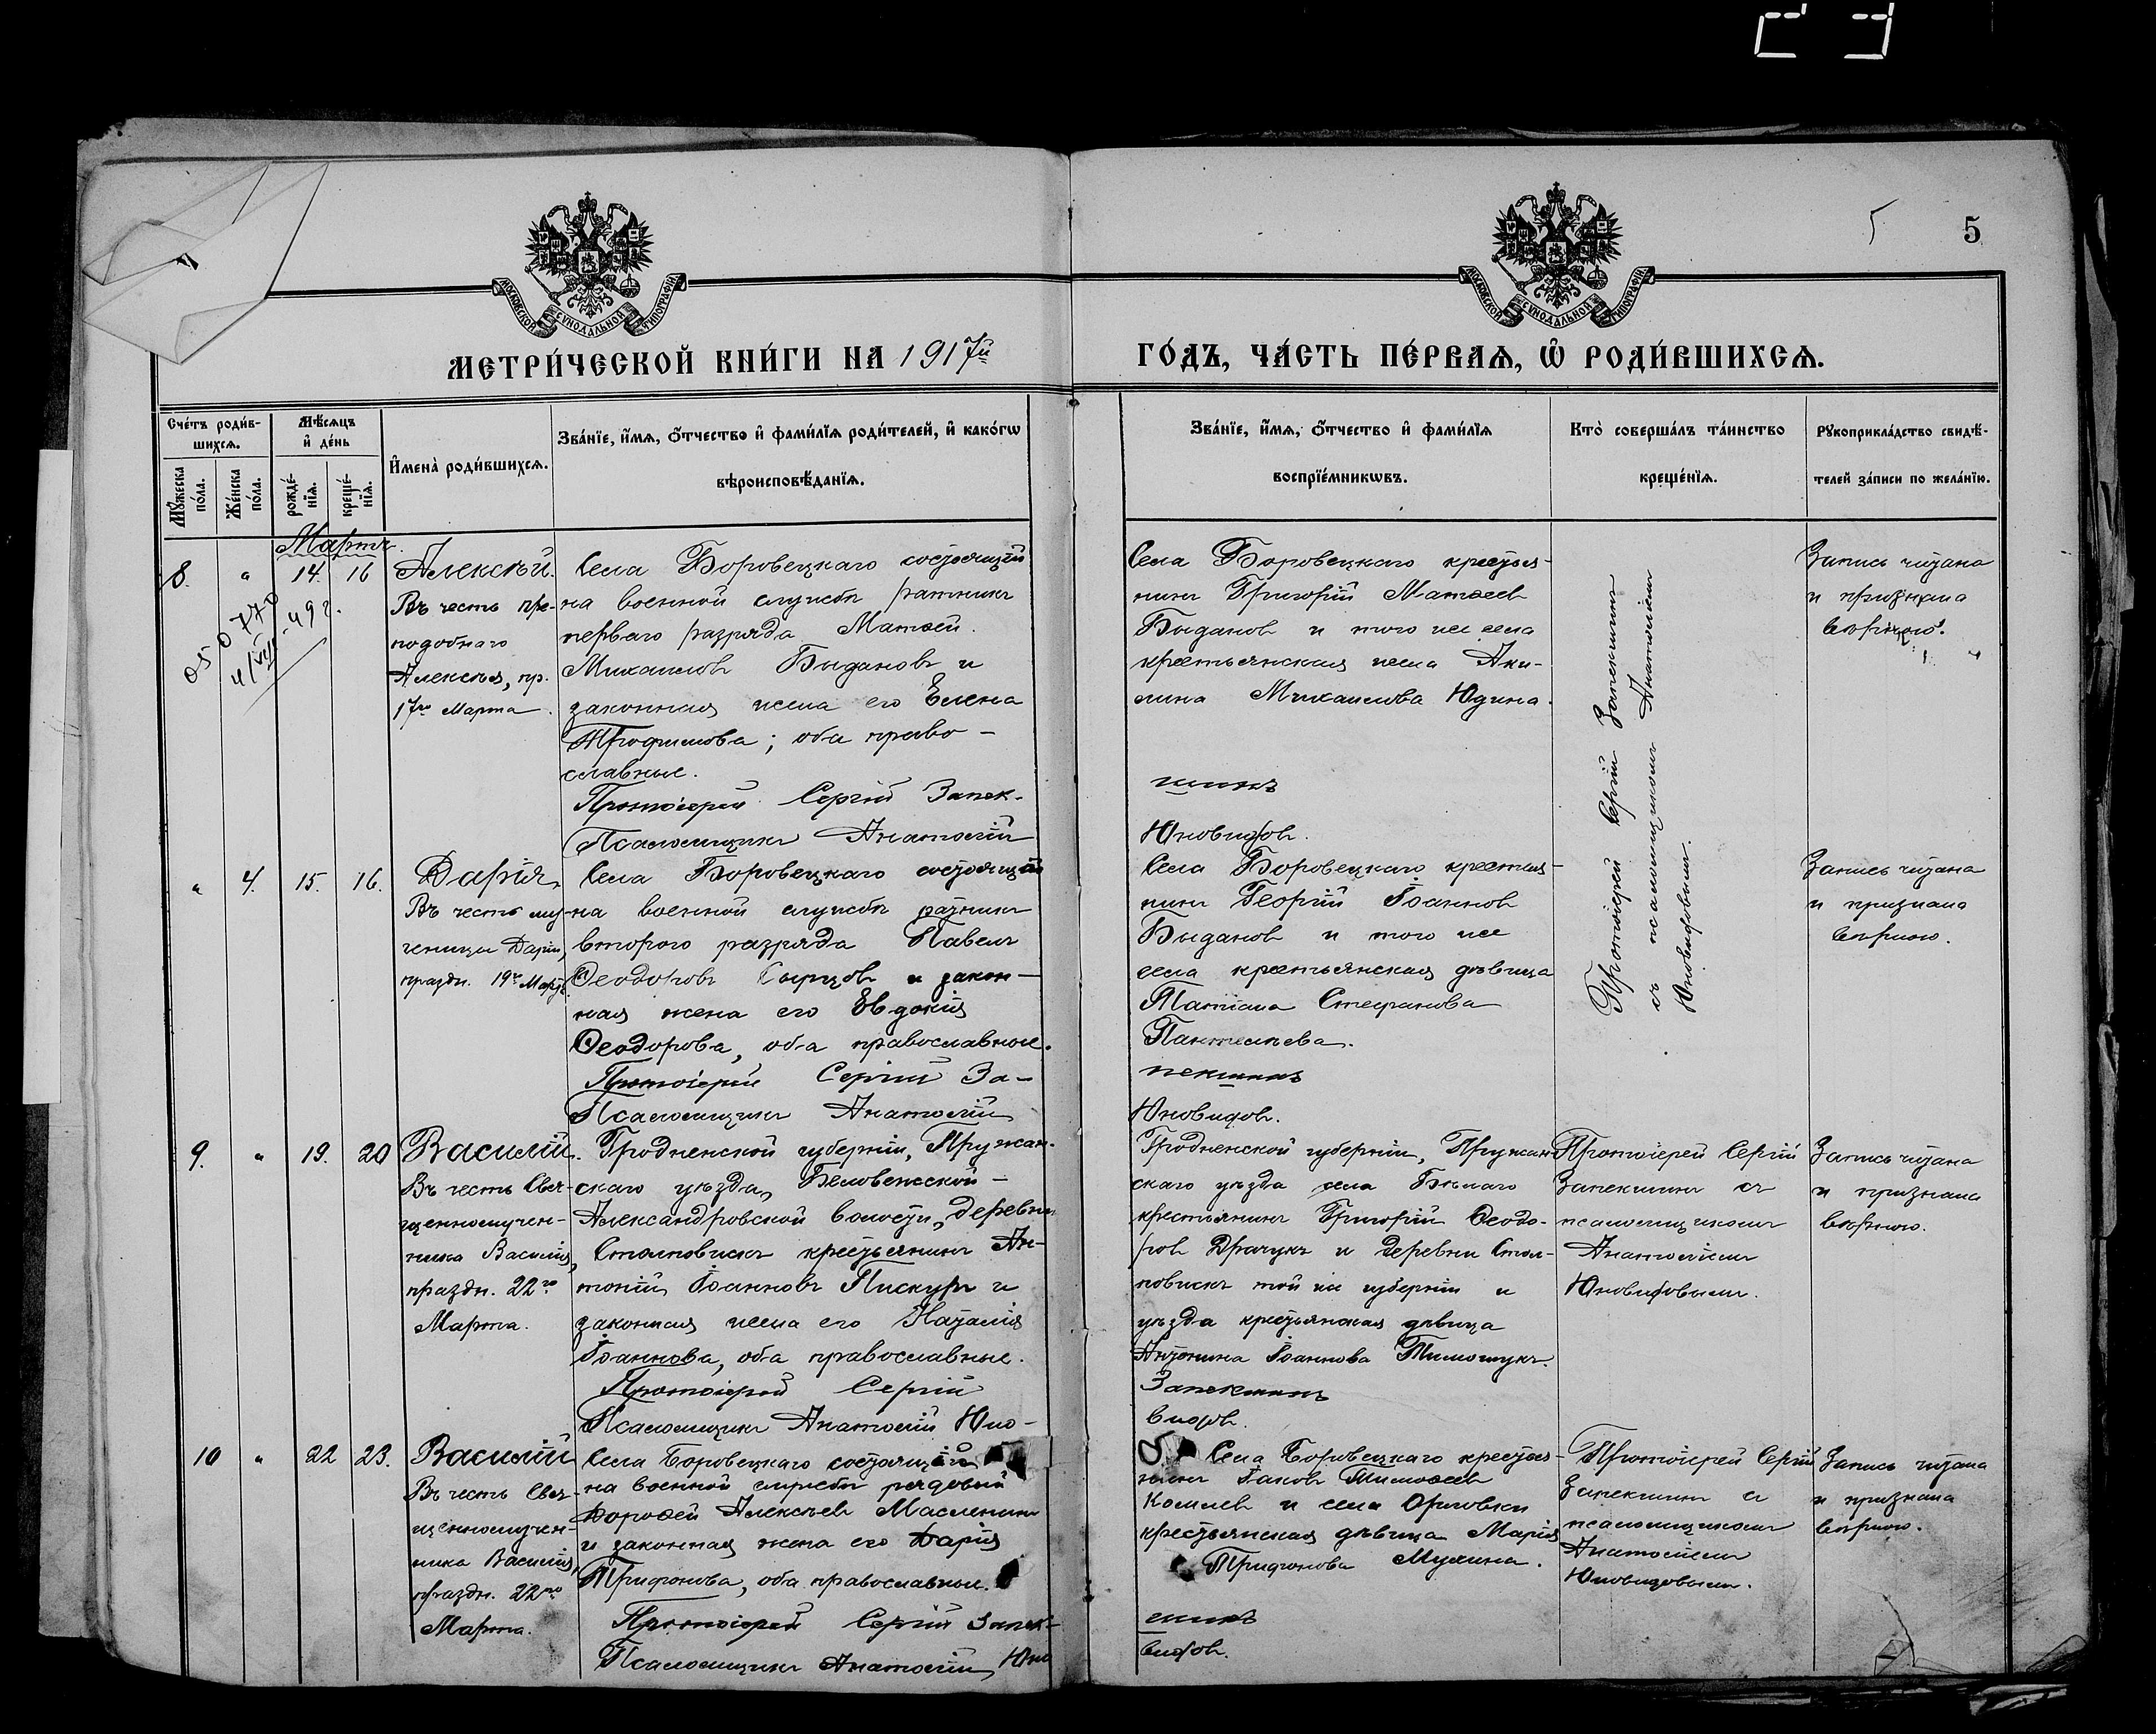 5
5
МОСКОВСКОЙ СѴНОДАЛЬНОЙ ТИПОГРАФІИ
МОСКОВСКОЙ СѴНОДАЛЬНОЙ ТИПОГРАФІИ
МЕТРИ́ЧЕСКОЙ КНИ́ГИ НА 1917й
ГО́ДЪ, ЧА́СТЬ ПЕ́РВАѦ, Ѡ҆ РОДИ́ВШИХСѦ.
Сче́тъ роди́в-
шихсѧ.
Мꙋ́жеска
по́ла.
Же́нска
по́ла.
Мѣ́сѧцъ
и҆ де́нь
рожде́-
нїѧ.
креще́-
нїѧ.
И҆мена̀ роди́вшихсѧ.
Зва́нїе, и҆́мѧ, ѻ҆́тчество и҆ фами́лїѧ роди́телей, и҆ како́гѡ
вѣроисповѣ́данїѧ.
Зва́нїе, и҆́мѧ, ѻ҆́тчество и҆ фами́лїѧ
воспрїе́мникѡвъ.
Кто̀ соверша́лъ та́инство
креще́нїѧ.
Рꙋкоприкла́дство свидѣ́-
телей за́писи по жела́нїю.
Мартъ.
8. „ 14. 16
49 г.
Алексѣй.
Въ честь пре-
подобнаго
Алексѣя, пр.
17го Марта.
Села Боровецкаго состоящій
на военной службѣ ратникъ
перваго разряда Матѳей
Михаиловъ Быдановъ и
законная жена его Елена
Трофимова; оба право-
славные.
Протоіерей Сергій Запек-
Псаломщикъ Анатолій
Села Боровецкаго крестья-
нинъ Григорій Матѳеев
Быдановъ и того же села
крестьянская жена Аки-
лина Михаилова Юдина.
шинъ
Юновидовъ.
Протоіерей Сергій Запекшинъ
съ псаломщикомъ Анатоліемъ
Юновидовымъ.
Запись читана
и признана
вѣрною.
„ 4. 15. 16.
Дарія,
Въ честь му-
ченицы Даріи,
праздн. 19го Марта.
Села Боровецкаго состоящій
на военной службѣ ратникъ
второго разряда Павелъ
Ѳеодоровъ Сырцовъ и закон-
ная жена его Евдокія
Ѳеодорова, оба православные.
Протоіерей Сергій За-
Псаломщикъ Анатолій
Села Боровецкаго крестья-
нинъ Георгій Іоаннов
Быдановъ и того же
села крестьянская дѣвица
Татіана Стефанова
Пантелѣева.
пекшинъ
Юновидовъ.
Запись читана
и признана
вѣрною.
9. „ 19. 20
Василій.
Въ честь Свя-
щенномучен-
ника Василія,
праздн. 22го
Марта.
Гродненской губерніи, Пружан-
скаго уѣзда, Бѣловежской-
Александровской волости, деревни
Столповискъ крестьянинъ Ан-
тоній Іоанновъ Пискуръ и
законная жена его Наталія
Іоаннова, оба православные.
Протоіерей Сергій
Псаломщикъ Анатолій Юно-
Гродненской губерніи, Пружан-
скаго уѣзда села Бѣлаго
крестьянинъ Григорій Ѳеодо-
ровъ Драчукъ и деревни Стол-
повискъ той же губерніи и
уѣзда крестьянская дѣвица
Антонина Іоаннова Тимошукъ.
Запекшинъ
видовъ.
Протоіерей Сергій
Запекшинъ съ
псаломщикомъ
Анатоліемъ
Юновидовымъ.
Запись читана
и признана
вѣрною.
10 „ 22 23.
Василій
Въ честь Свя-
щенномучен-
ника Василія,
праздн. 22го
Марта.
Села Боровецкаго состоящій
на военной службѣ рядовой
Дороѳей Алексѣевъ Масленинъ
и законная жена его Дарія
Трифонова, оба православные.
Протоіерей Сергій Запек-
Псаломщикъ Анатолій Юно
Села Боровецкаго крестья-
нинъ Іаковъ Тимоѳеев
и села Орловки
крестьянская дѣвица Марія
Трифонова Мухина.
шинъ
видовъ.
Протоіерей Сергій
Запекшинъ съ
псаломщикомъ
Анатоліемъ
Юновидовымъ.
Запись читана
и признана
вѣрною.